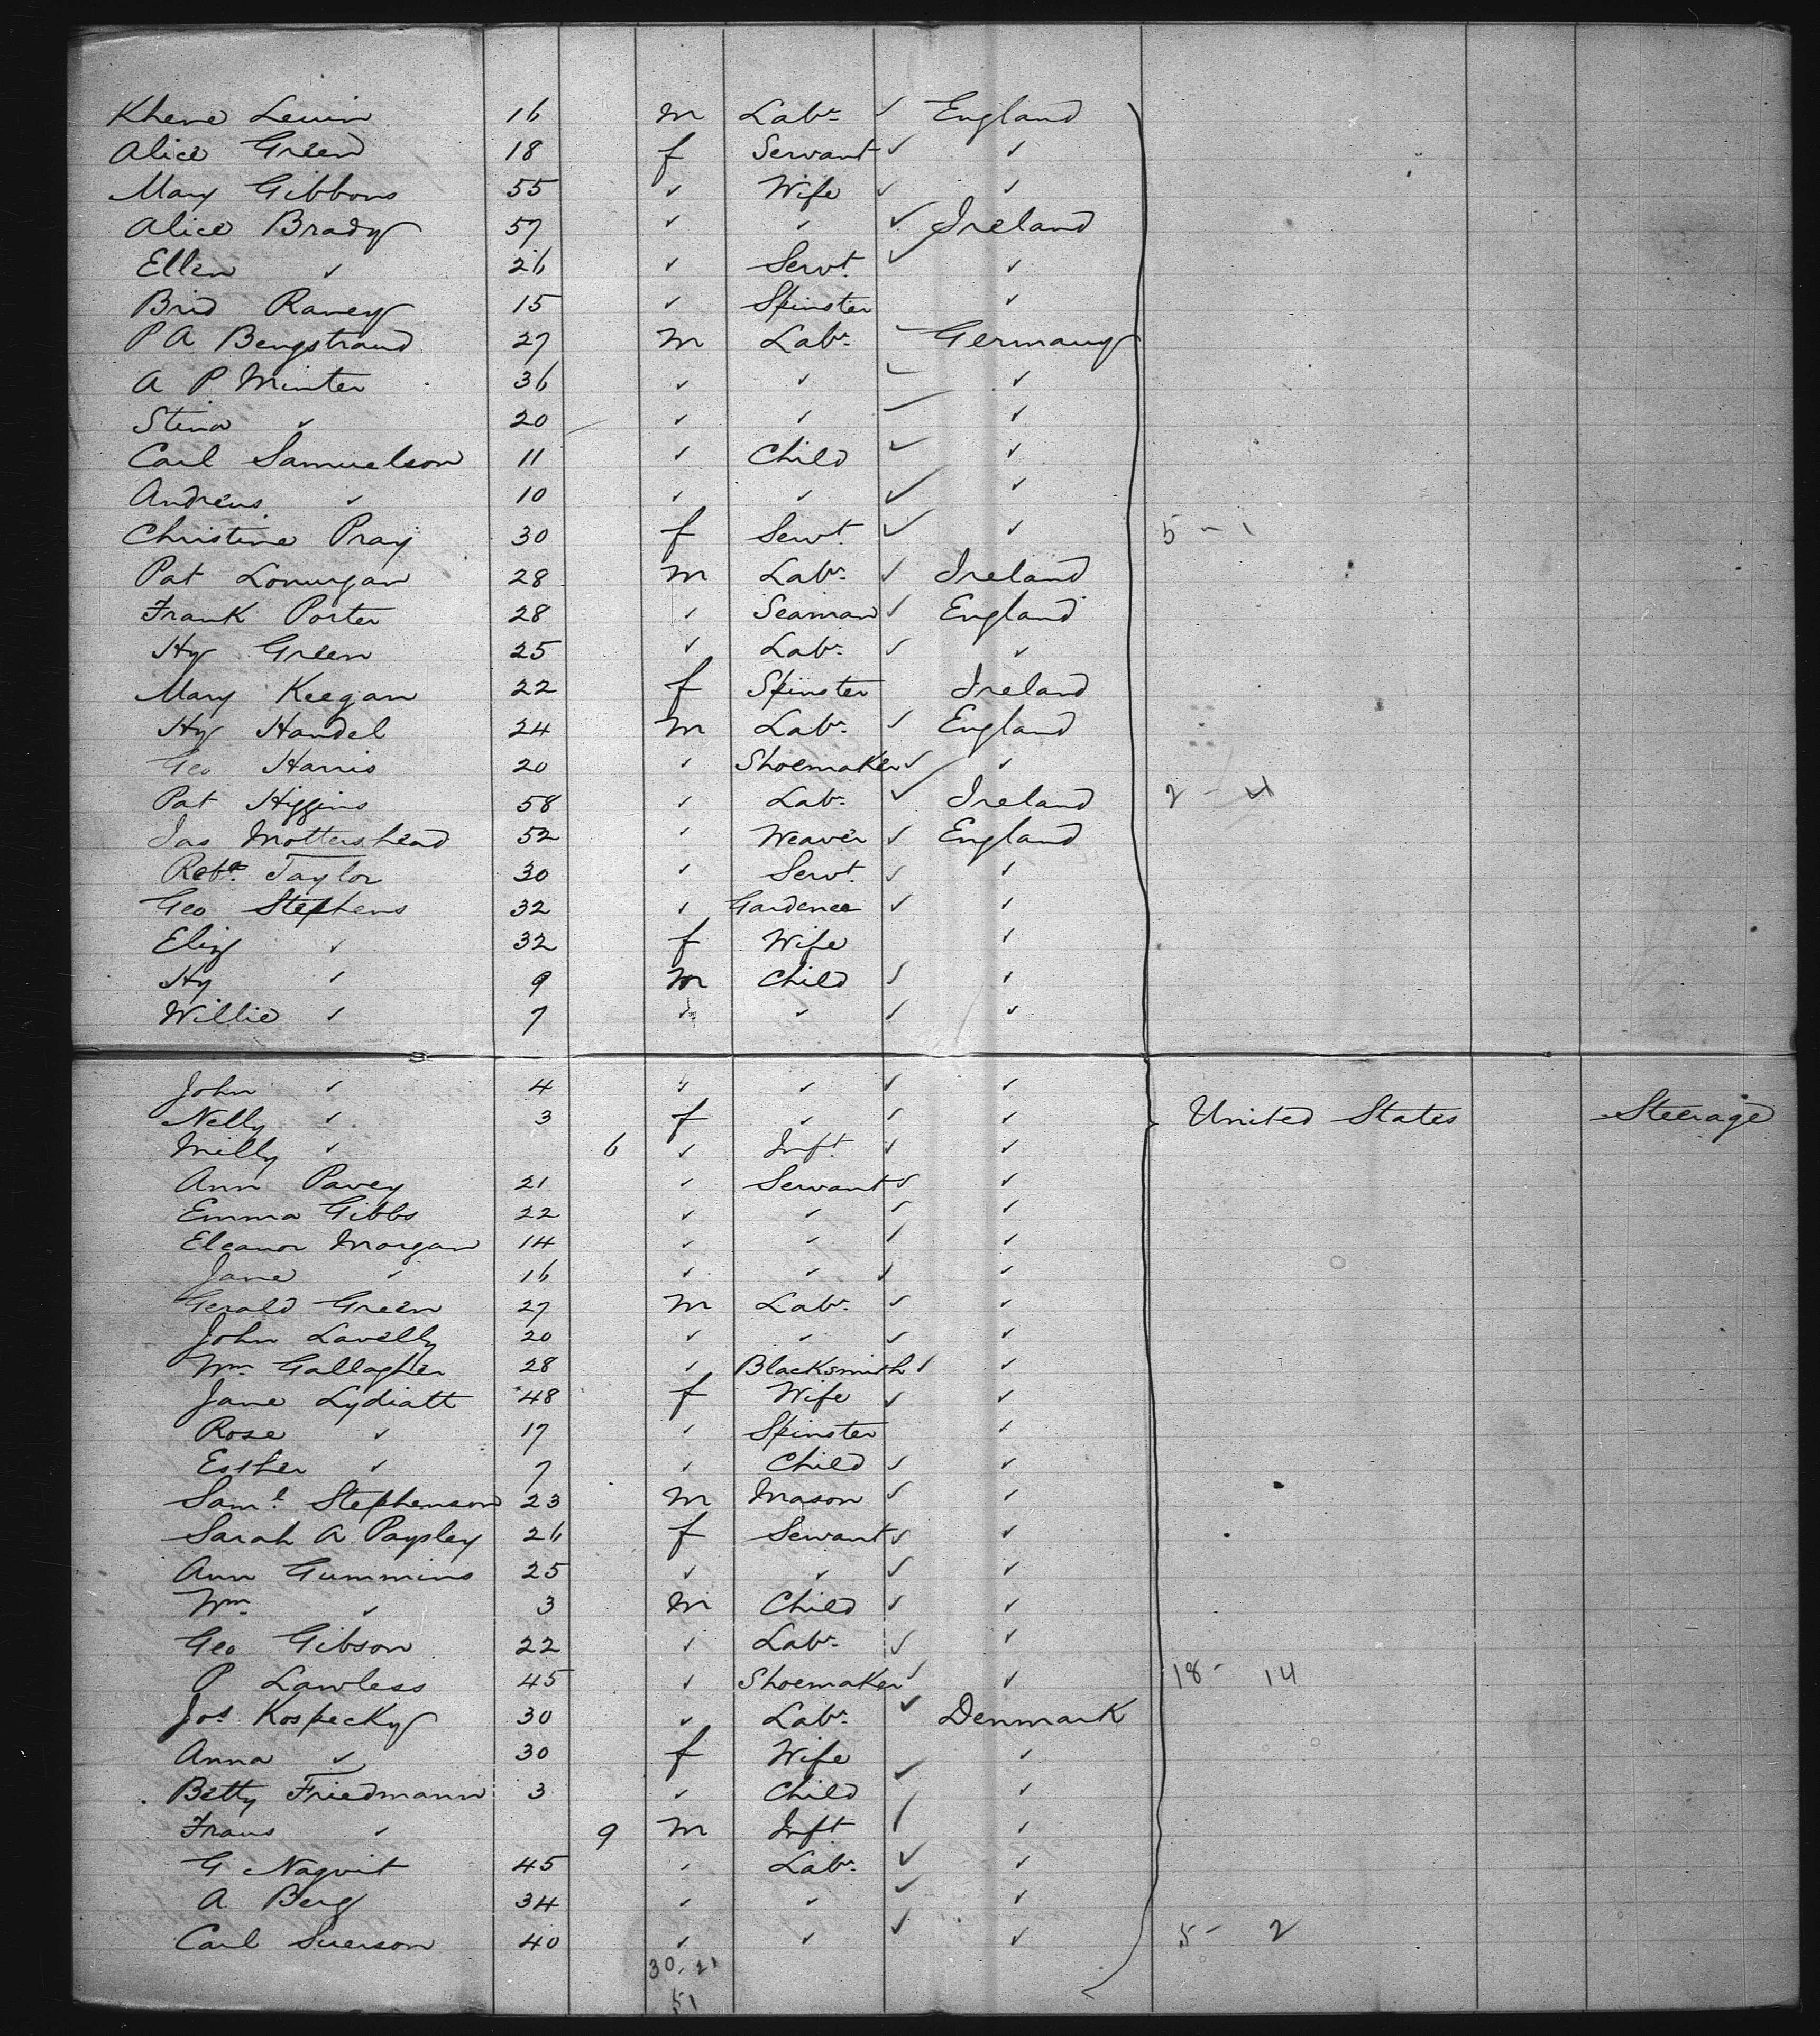 Khene Levin 16 m Labr ✓ England
Alice Green 18 f Servant ✓ ✓
Mary Gibbons 55 ✓ Wife ✓ ✓
Alice Brady 57 ✓ ✓ ✓ Ireland
Ellen ✓ 26 ✓ Servt. ✓ ✓
Brid Raney 15 ✓ Spinster ✓
P A Bengstrand 27 m Labr Germany
A P Minter 36 ✓ ✓ ✓ ✓
Stina ✓ 20 ✓ ✓ ✓ ✓
Carl Samuelson 11 ✓ Child ✓ ✓
Andreas ✓ 10 ✓ ✓ ✓ ✓
Christine Pray 30 f Servt. ✓ ✓ 5 - 1
Pat Lonergan 28 m Labr ✓ Ireland
Frank Porter 28 ✓ Seaman ✓ England
Hy Green 25 ✓ Labr ✓ ✓
Mary Keegan 22 f Spinster Ireland
Hy Handel 24 m Labr ✓ England
Geo Harris 20 ✓ Shoemaker ✓ ✓
Pat Higgins 58 ✓ Labr ✓ Ireland 2 - 4
Jas Mottershead 52 ✓ Weaver ✓ England
Reba. Taylor 30 ✓ Servt. ✓ ✓
Geo Stephens 32 ✓ Gardener ✓ ✓
Eliz ✓ 32 f Wife ✓
Hy ✓ 9 m Child ✓ ✓
Willie ✓ 7 ✓ ✓ ✓ ✓
John ✓ 4 ✓ ✓ ✓ ✓
Nelly ✓ 3 f ✓ ✓ ✓ United States Steerage
Milly ✓ 6 ✓ Inft ✓ ✓
Ann Pavey 21 ✓ Servant ✓ ✓
Emma Gibbs 22 ✓ ✓ ✓ ✓
Eleanor Morgan 14 ✓ ✓ ✓ ✓
Jane ✓ 16 ✓ ✓ ✓ ✓
Gerald Green 27 m Labr ✓ ✓
John Lavelly 20 ✓ ✓ ✓ ✓
Wm Gallagher 28 ✓ Blacksmith ✓ ✓
Jane Lydiatt 48 f Wife ✓ ✓
Rose ✓ 17 ✓ Spinster ✓
Esther ✓ 7 ✓ Child ✓ ✓
Saml Stephenson 23 m Mason ✓ ✓
Sarah A Paysley 26 f Servant ✓ ✓
Ann Gummins 25 ✓ ✓ ✓ ✓
Wm ✓ 3 m Child ✓ ✓
Geo Gibson 22 ✓ Labr ✓ ✓
P Lawless 45 ✓ Shoemaker ✓ ✓ 18 - 14
Jos Kospecky 30 ✓ Labr ✓ Denmark
Anna ✓ 30 f Wife ✓
Betty Friedmann 3 ✓ Child ✓ ✓
Frans ✓ 9 m Inft ✓ ✓
G Naqvit 45 ✓ Labr ✓ ✓
A Berg 34 ✓ ✓ ✓ ✓
Carl Suerson 40 ✓ ✓ ✓ ✓ 5 - 2
30. 21
51